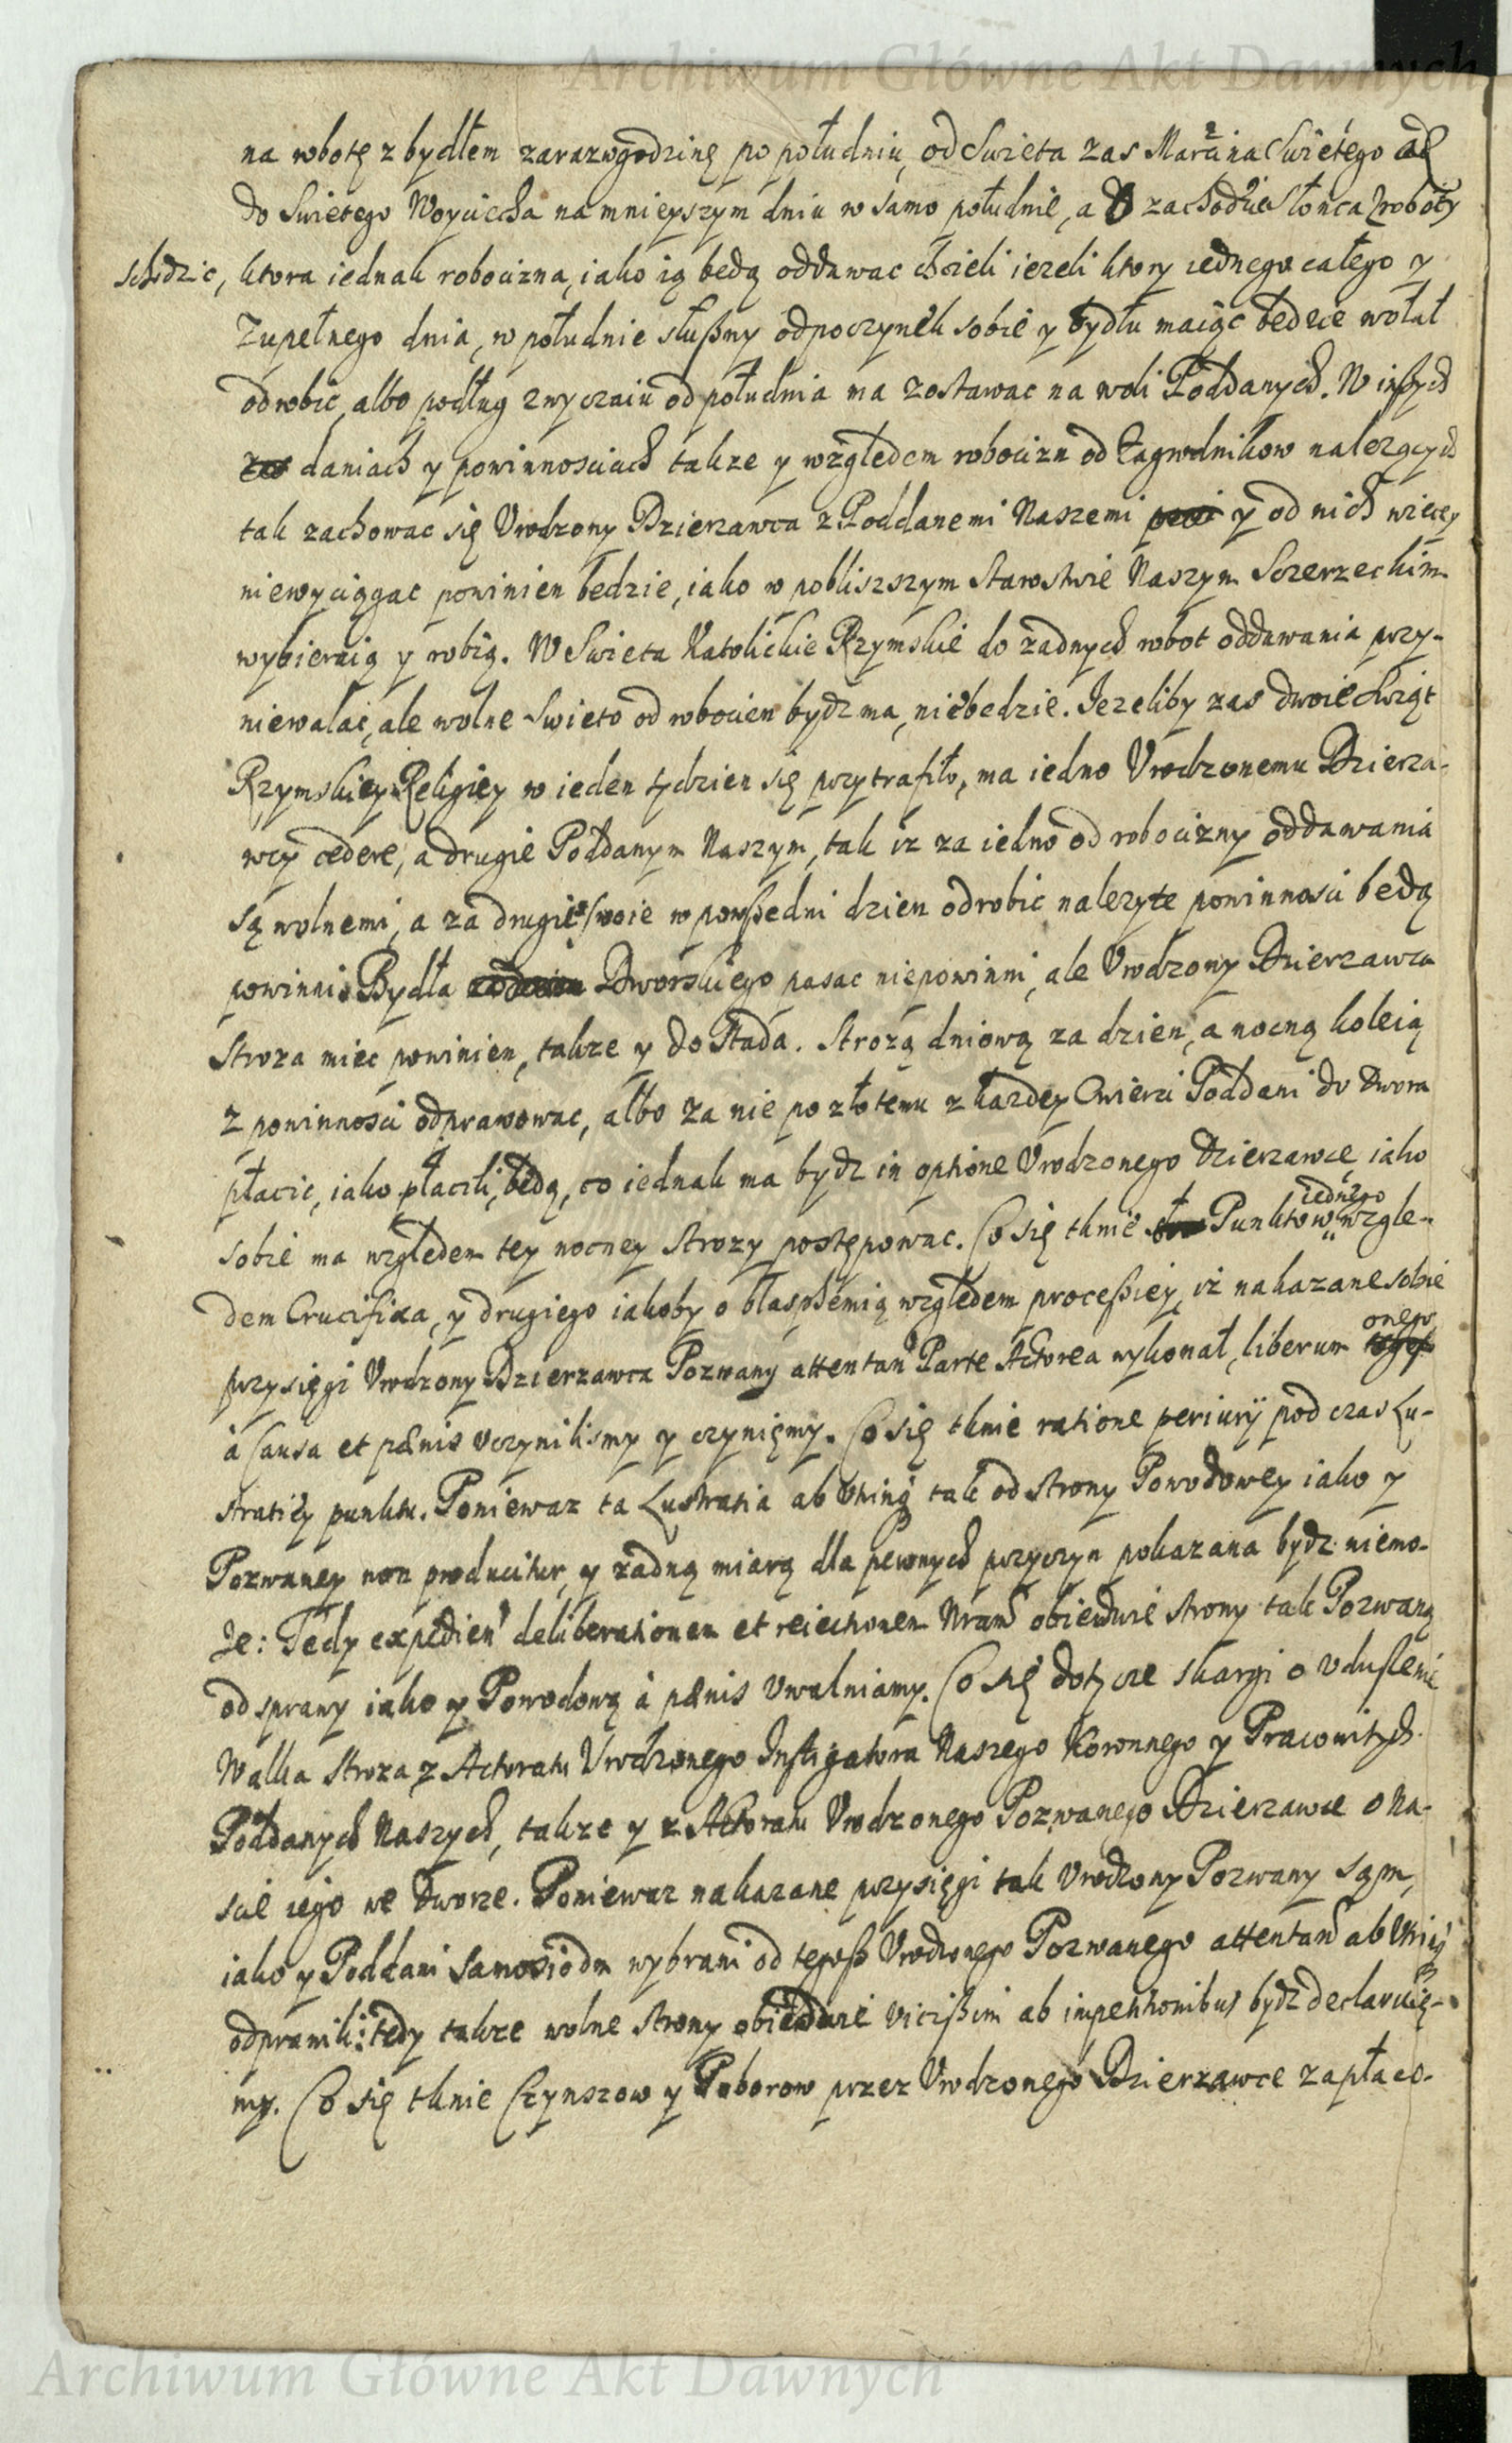 Archiwum Główne Akt Dawnych
na robotę z bydłem zarazwgodzinę po południu, od Swieta zas Marcina Swiętego
do Swietego Woyciecha na mnieyszym dniu w samo południe, a zachodzie Słonca z roboty
schodzic, ktora iednak robocizna, iako ią będą oddawac chcieli iezeli ktory iednego całego y
Zupełnego dnia, w południe słußny odpoczynek sobie y bydłu maiąc bedzie wolał
odrobic, albo podług zwyczaiu od południa ma zostawac na woli Poddanych. W inßych
daniach y powinnosciach takze y względem robocizn od Zagrodnikow nalezących
tak zachowac się Urodzony Dzierzawca z Poddanemi Naszemi y od nich wiecey
niewyciągac powinien bedzie, iako w pobliszszym Starostwie Naszym Sczerzeckim
wybieraią y robią. W Swieta Katolickie Rzymskie do zadnych robot oddawania przy-
niewalac, ale wolne Swieto od robocien bydz ma, niebedzie. Jezeliby zas dwoie Swiąt
Rzymskiey Religiey w ieden tydzien się przytrafiło, ma iedno Urodzonemu Dzierza-
wcy cedere, a drugie Poddanym Naszym, tak iz za iedno od robocizny oddawania
są wolnemi, a za drugie swoie w powßedni dzien odrobic nalezyte powinnosci będą
powinni. Bydła Dworskiego pasac niepowinni, ale Urodzony Dzierzawca
Stroza miec powinien, takze y do Stada. Strozą dniową za dzien, a nocną koleią
z powinnosci odprawowac, albo za nie po złotemu z kazdey Cwierci Poddani do Dwora
płacic, iako płacili, będą, co iednak ma bydz in optione Urodzonego Dzierzawce iako
sobie ma względem tey nocney Strozy postępowac. Co się tknie Punktow iednego wzglę-
dem Crucifixa, y drugiego iakoby o blasphemią względem proceßiey, iz nakazane sobie
przysięgi Urodzony Dzierzawca Pozwany attentan Parte Actorea wykonał, liberum onego
à Causa et pænis uczynilismy y czyniemy. Co się tknie ratione periurij pod czas Lu-
stratiey punktu. Poniewaz ta Lustratia ab utrinq tak od Strony Powodowey iako y
Pozwaney non producitur, y zadną miarą dla pewnych przyczyn pokazana bydz niemo-
ze: Tedy expedien deliberationem et reiectionem Nram obiedwie Strony tak Pozwaną
od sprawy iako y Powodową à pænis uwalniamy. Co się dotycze skargi o udußenie
Walka Stroza z Actoratu Urodzonego Instigatora Naszego Koronnego y Pracowitych
Poddanych Naszych, takze y z Actoratu Urodzonego Pozwanego Dzierzawce o na-
scie iego we Dworze. Poniewaz nakazane przysięgi tak Urodzony Pozwany sąm,
iako y Poddani samosiodm wybrani od tegoß Urodzonego Pozwanego attentam ab utrinq
odprawili: tedy takze wolne Strony obiedwie vicißim ab impetitionibus bydz declaruię-
my. Co się tknie Czynszow y Poborow przez Urodzonego Dzierzawce zapłaco-
Archiwum Główne Akt Dawnych